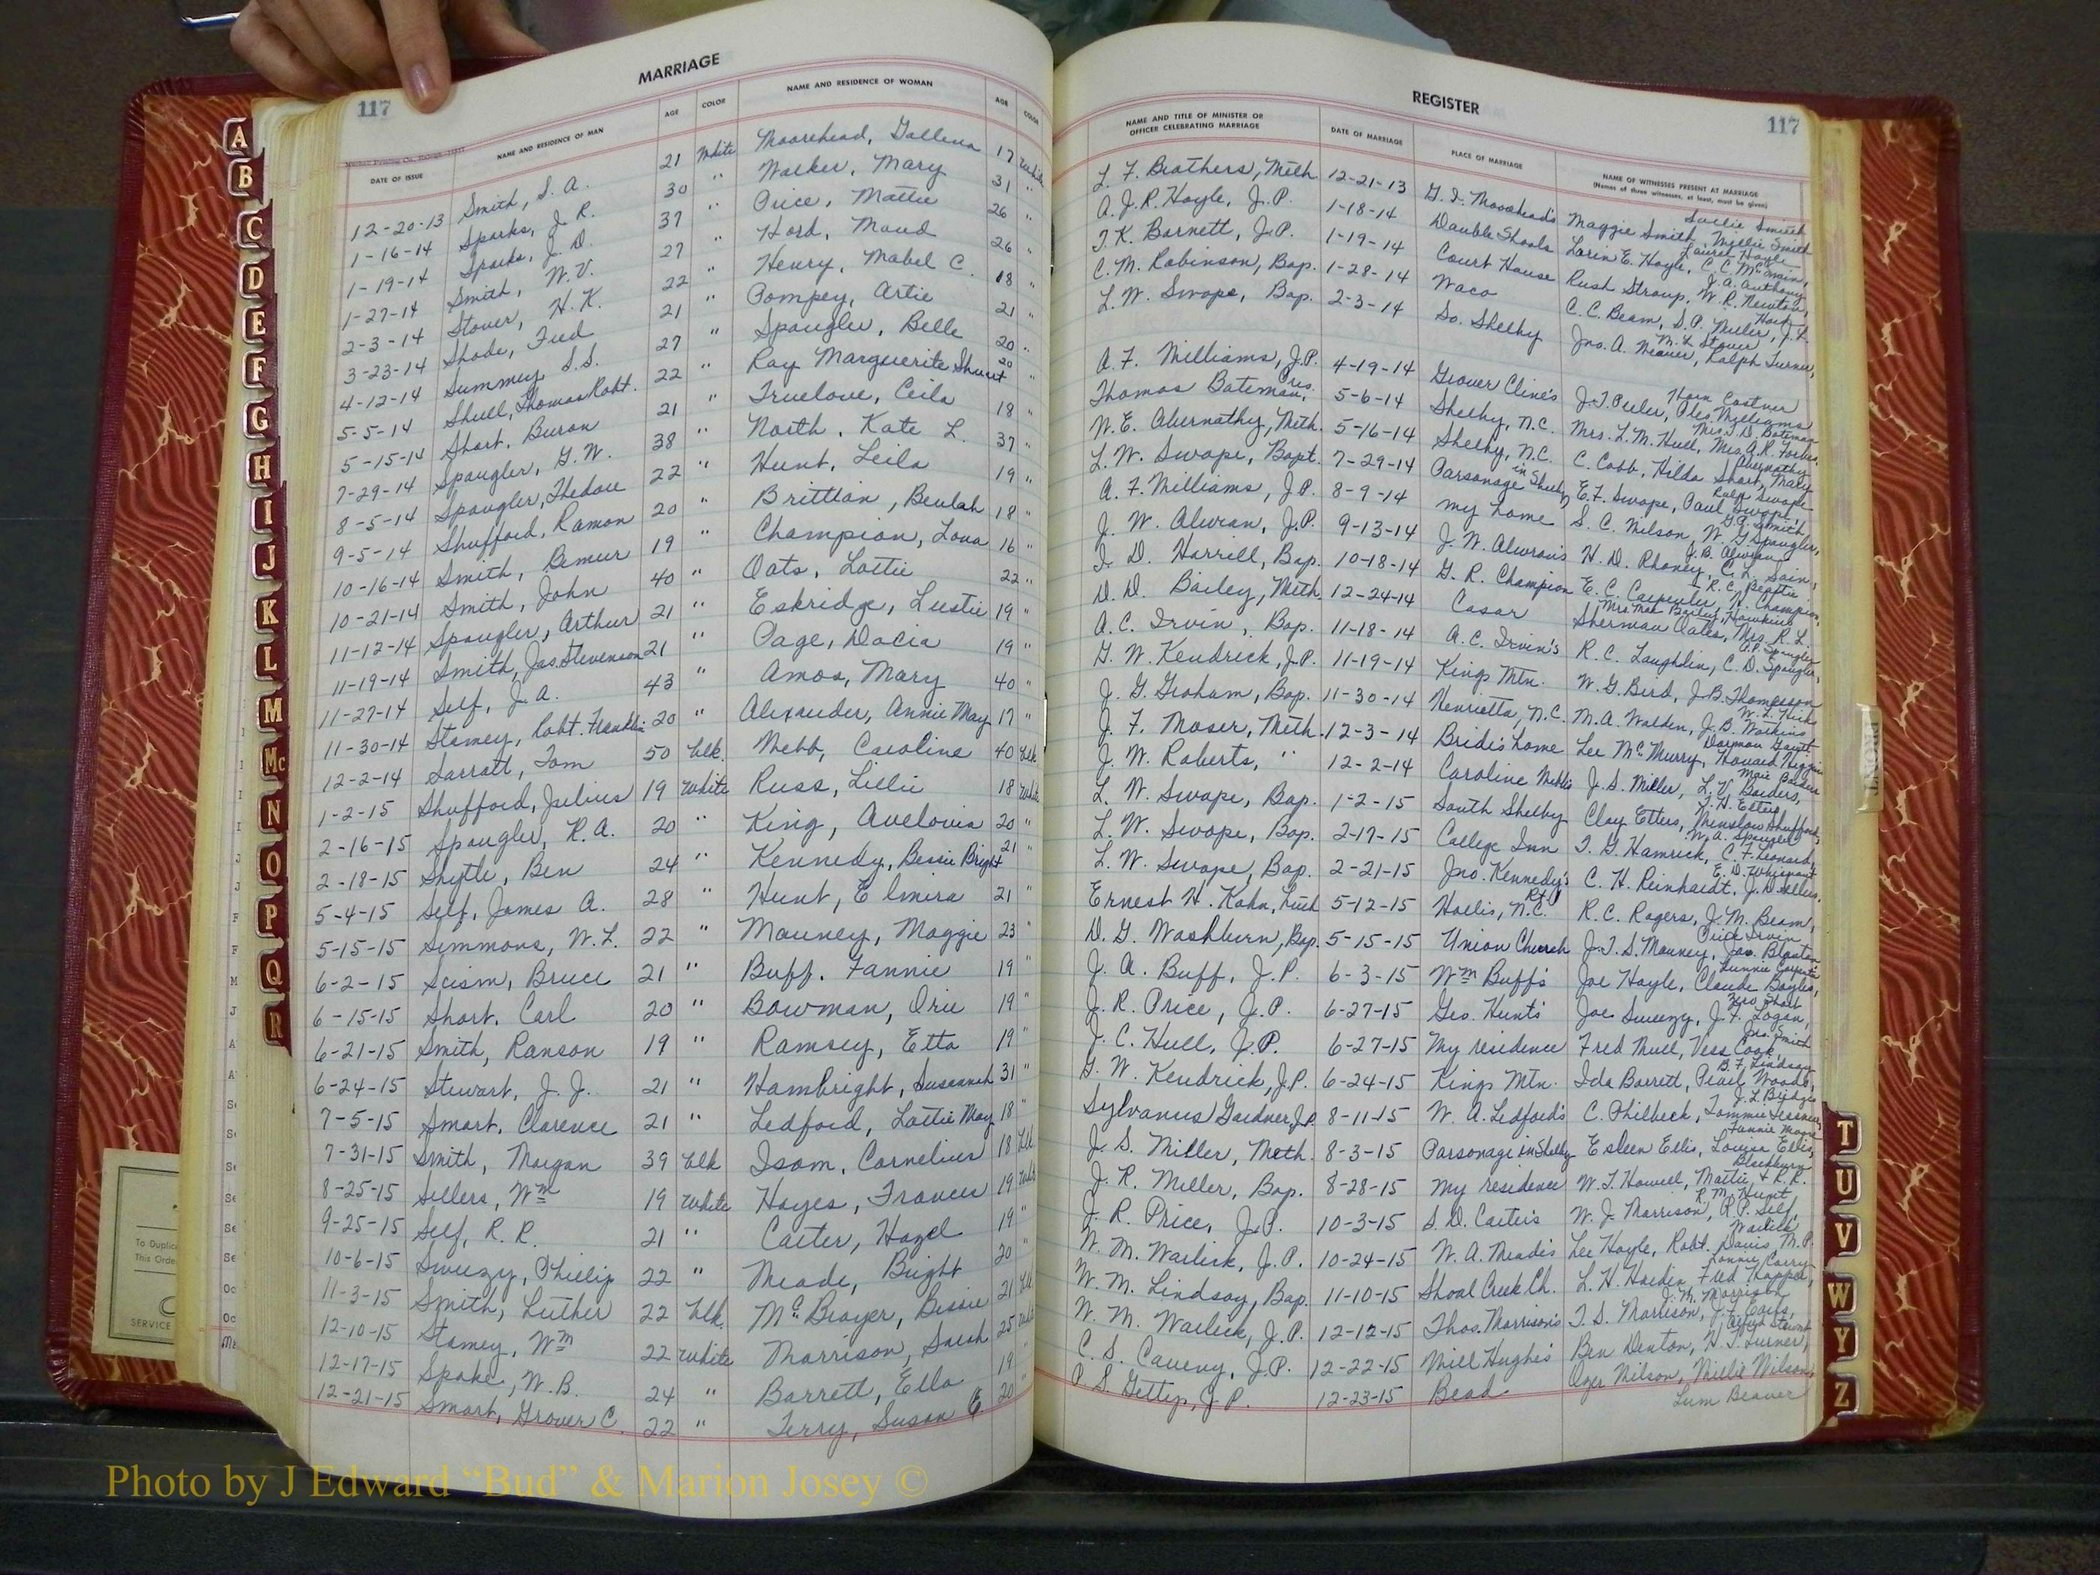 MARRIAGE
117
DATE OF ISSUE NAME AND RESIDENCE OF MAN AGE COLOR NAME AND RESIDENCE OF WOMAN AGE COLOR
12-20-13 Smith, S. A. 21 White Moorehead, 17 White
1-16-14 Sparks, J. R. 30 " Walker, Mary 31 "
1-19-14 Sparks, J. D. 37 " Price, Mattie 26 "
1-27-14 Smith, W. V. 27 " Hord, Maud 26 "
2-3-14 Stover, H. K. 22 " Henry, Mabel C. 18 "
3-23-14 Shade, Fred 21 " Pompey, Artie 21 "
4-12-14 Summey, S. S. 27 " Spangler, Belle 20 "
5-5-14 Shull, Thomas Robt. 22 " Ray Marguerite 20 "
5-15-14 Short, Buron 21 " Truelove, Ceila 18 "
7-29-14 Spangler, G. W. 38 " North, Kate L. 37 "
8-5-14 Spangler, Thedore 22 " Hunt, Leila 19 "
9-5-14 Shufford, Ramon 20 " Brittian, Beulah 18 "
10-16-14 Smith, 19 " Champion, Lova 16 "
10-21-14 Smith, John 40 " Oats, Lottie 22 "
11-12-14 Spangler, Arthur 21 " Eskridge, Lustie 19 "
11-19-14 Smith, Jas. Stevenson 21 " Page, Dacia 19 "
11-27-14 Self, J. A. 43 " Amos, Mary 40 "
11-30-14 Stamey, Robt. Franklin 20 " Alexander, Annie May 17 "
12-2-14 Sarratt, Tom 50 blk. Webb, Caroline 40 blk
1-2-15 Shufford, Julius 19 White Russ, Lillie 18 White
2-16-15 Spangler, R. A. 20 " King, Avelonia 20 "
2-18-15 Shytle, Ben 24 " Kennedy, Bessie Bright 21 "
5-4-15 Self, James A. 28 " Hunt, Elmira 21 "
5-15-15 Simmons, W. L. 22 " Mauney, Maggie 23 "
6-2-15 Scism, Bruce 21 " Buff, Fannie 19 "
6-15-15 Short, Carl 20 " Bowman, Orie 19 "
6-21-15 Smith, Ranson 19 " Ramsey, Etta 19 "
6-24-15 Stewart, J. J. 21 " Hambright, Susannah 31 "
7-5-15 Smart, Clarence 21 " Ledford, Lottie May 18 "
7-31-15 Smith, Morgan 39 blk Isom, Cornelius 18 blk
8-25-15 Sellers, Wm 19 White Hayes, Frances 19 White
9-25-15 Self, R. R. 21 " Carter, Hazel 19 "
10-6-15 Sweezy, Phillip 22 " Meade, Bright 20 "
11-3-15 Smith, Luther 22 blk. McBrayer, Bessie 21 blk
12-10-15 Stamey, Wm 22 White Morrison, Sarah 25 White
12-17-15 Spake, W. B. 24 " Barrett, Ella 19 "
12-21-15 Smart, Grover C. 22 " Terry, Susan E 20 "
REGISTER
117
NAME AND TITLE OF MINISTER OR OFFICER CELEBRATING MARRIAGE DATE OF MARRIAGE PLACE OF MARRIAGE NAME OF WITNESSES PRESENT AT MARRIAGE
(Names of three witnesses, at least, must be given)
L. F. Brothers, Meth 12-21-13 G. I. Moorehead's Maggie Smith, Millie Smith Sallie Smith
A. J. R. Hoyle, J. P. 1-18-14 Double Shoals Loren E. Hoyle, C. C. McSwain,
T. K. Barnett, J. P. 1-19-14 Court House Rush Stroup, W. R. Newton, J. A. Anthony
C. M. Robinson, Bap. 1-28-14 Waco C. C. Beam, S. P. Miller, J. L. Hord
L. W. Swope, Bap. 2-3-14 So. Shelby Jno. A. Weaver, Ralph Turner, M. L. Stover
A. F. Williams, J. P. 4-19-14 Grover Cline's J. T. Peeler, Cleo Williams Thom Costner
Thomas Bateman, Pres. 5-6-14 Shelby, N.C. Mrs. L. M. Hull, Mrs. A. R. Forbes Mrs. T. D. Bateman
W. E. Abernathy, Meth. 5-16-14 Shelby, N.C. C. Cobb, Hilda Short, Mary Abernathy
L. W. Swope, Bapt. 7-29-14 Parsonage in Shelby E. F. Swope, Paul Swope, Ralph Swope
A. F. Williams, J. P. 8-9-14 my home S. C. Wilson, W. G. Spangler, G. P. Smith
J. W. Alwran, J. P. 9-13-14 J. W. Alwran's H. D. Rhoney, C. L. Sain, J. B. Alwran
I. D. Harrill, Bap. 10-18-14 G. R. Champion E. C. Carpenter, W. Champion,
D. D. Bailey, Meth. 12-24-14 Casar Sherman Oates, Mrs. R. L. Hawkins, Mrs. Mae Bailey
A. C. Irvin, Bap. 11-18-14 A. C. Irvin's R. C. Laughlin, C. D. Spangler, A. P. Spangler
G. W. Kendrick, J. P. 11-19-14 Kings Mtn. W. G. Bird, J. B. Thompson
J. G. Graham, Bap. 11-30-14 Henrietta, N.C. M. A. Walden, J. B. Watkins W. L. Hicks
J. F. Moser, Meth. 12-3-14 Bride's home Lee McMurry, Howard
J. W. Roberts, " 12-2-14 Caroline Webb's J. S. Miller, L. V. Borders, Marie Borders
L. W. Swope, Bap. 1-2-15 South Shelby Clay Etters, Winslow Shufford, T. H. Etters
L. W. Swope, Bap. 2-17-15 College Inn T. G. Hamrick, C. F. Leonard, W. A. Spangler
L. W. Swope, Bap. 2-21-15 Jno. Kennedy's C. H. Reinhardt, J. D. Ellis, E. D. Whisnant
Ernest H. Kohn, Luth 5-12-15 Hollis, N.C. R.F.D. R. C. Rogers, J. M. Beam,
D. G. Washburn, Bap. 5-15-15 Union Church J. T. S. Mauney, Jas. Blanton
J. A. Buff, J. P. 6-3-15 Wm Buff's Joe Hoyle, Claude Boyles,
J. R. Price, J. P. 6-27-15 Geo. Hunt's Joe Sweezy, J. F. Logan, Zero Short
J. C. Hull, J. P. 6-27-15 My residence Fred Mull, Vess Cook, Jno. Smith
G. W. Kendrick, J. P. 6-24-15 Kings Mtn. Ida Barrett, Pearl Woods, B. F. Lindsay
Sylvanus Gardner, J.P. 8-11-15 W. A. Ledford's C. Philbeck, Tommie Tessner, J. L. Bridges
J. S. Miller, Meth. 8-3-15 Parsonage in Shelby Esleen Ellis, Louisa Ellis, Fannie
J. R. Miller, Bap. 8-28-15 My residence W. T. Howell, Mattie & R. R. Blackburn
J. R. Price, J. P. 10-3-15 S. D. Carter's W. J. Morrison, R. P. Self, R. M. Hunt
W. M. Warlick, J. P. 10-24-15 W. A. Meade's Lee Hoyle, Robt. Davis, M. P. Warlick
W. M. Lindsay, Bap. 11-10-15 Shoal Creek Ch. L. H. Hardin, Fred Hopper, Lonnie Corry
W. M. Warlick, J. P. 12-12-15 Thos. Morrison's T. S. Morrison, J. F. Carts, J. M. Morrison
C. S. Caveny, J. P. 12-22-15 Will Hughes' Ben Denton, H. T. Turner,
P. S. Gettys, J. P. 12-23-15 Bead Oger Wilson, Millie Wilson,
Lum Beaver
A
B
C
D
E
F
G
H
I
J
K
L
M
Mc
N
O
P
Q
R
T
U
V
W
Y
Z
FRONT
To Duplic
This Orde
SERVICE
Photo by J Edward “Bud” & Marion Josey ©